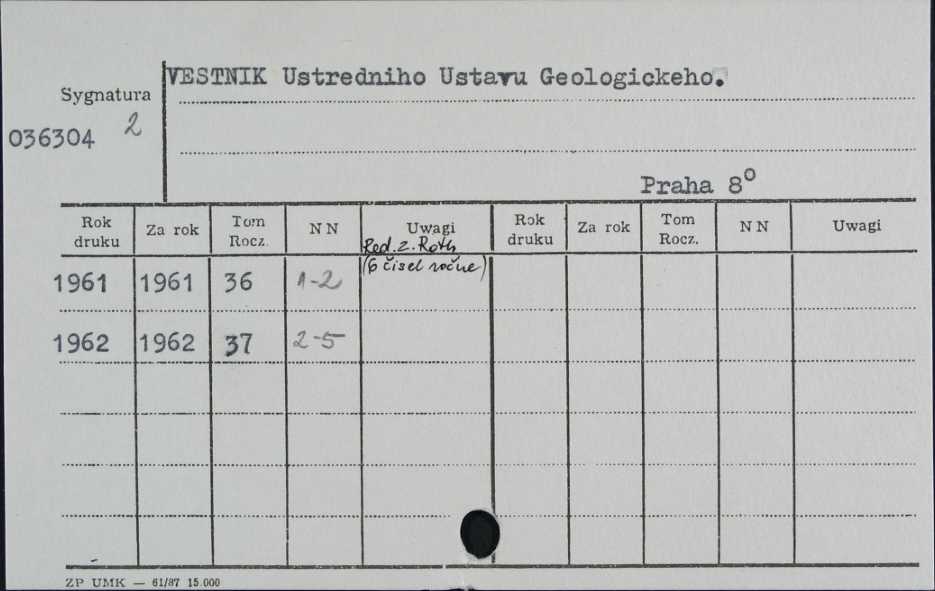 VESTNIK Ustredniho Ustavu Geologickeho.
Sygnatura
036304 2
Praha 8°
Rok druku Za rok Tom Rocz. NN Uwagi Rok druku Za rok Tom Rocz. NN Uwagi
Red. Z. Roth
(6 čisel ročne)
1961 1961 36 1-2
1962 1962 37 2-5
ZP UMK — 61/87 15.000